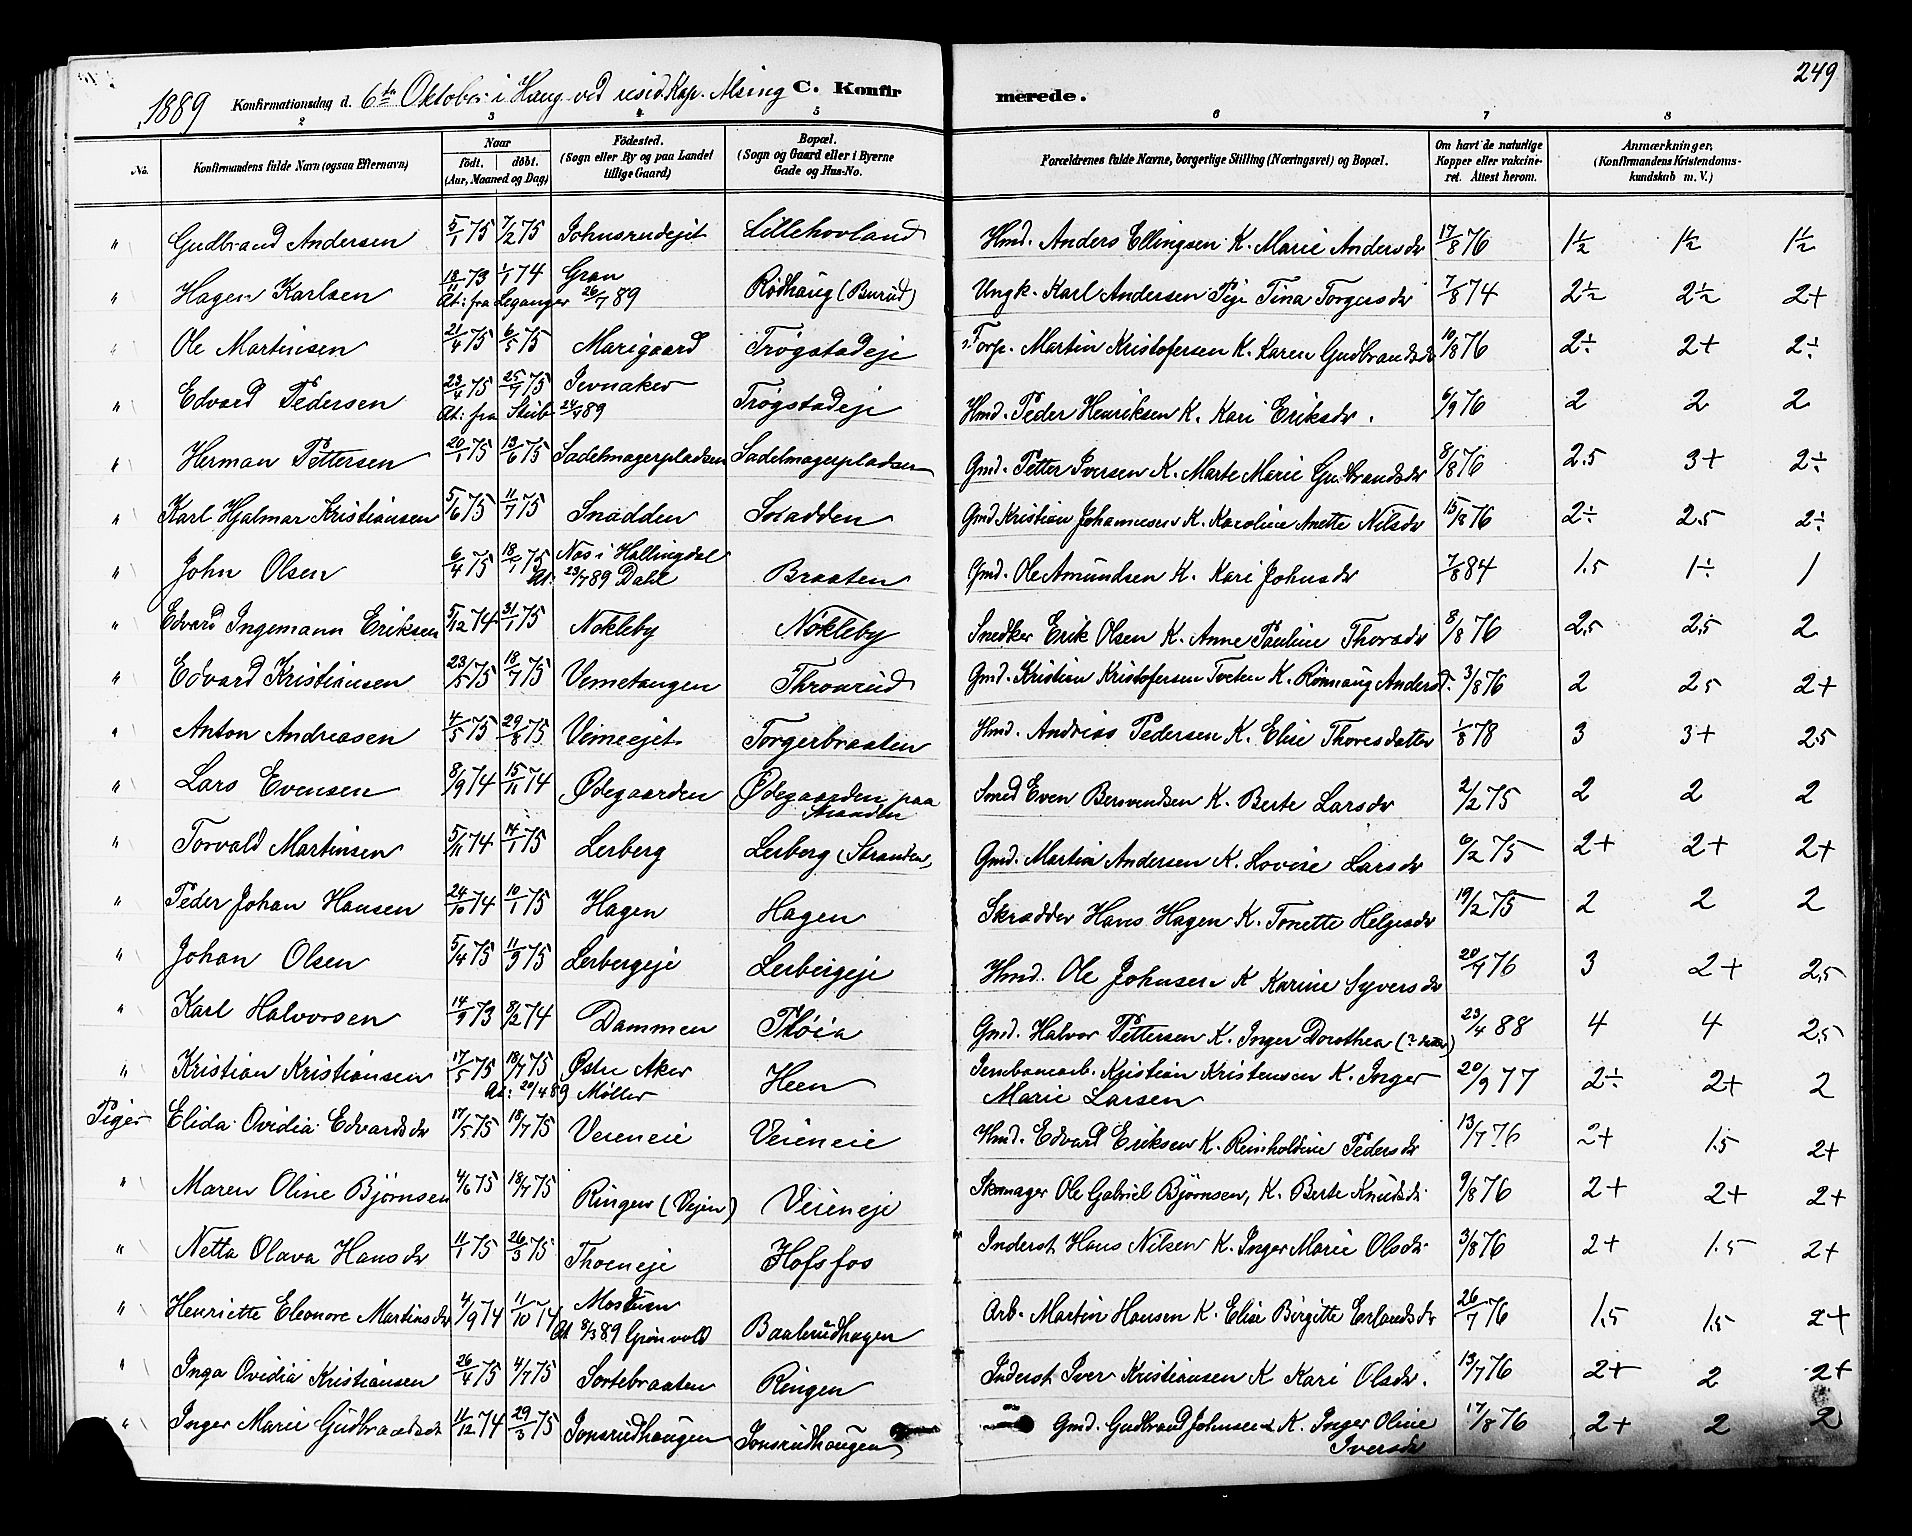 249
1889 Konfirmationsdag d. 6te Oktober i Haug ved resid. Kap. Alsing C. Konfirmerede.
2 3 4 5 6 7 8
No. Konfirmandens fulde Navn (ogsaa Efternavn) Naar födt. döbt. (Aar, Maaned og Dag) Födested. (Sogn eller By og paa Landet tillige Gaard) Bopæl. (Sogn og Gaard eller i Byerne Gade og Hus-No. Forældrenes fulde Navne, borgerlige Stilling (Næringsvei) og Bopæl. Om havt de naturlige Kopper eller vakcineret. Attest herom. Anmærkninger, (Konfirmandens Kristendomskundskab m. V.)
" Gudbrand Andersen 5/1 75 7/2 75 Johnsrudejet Lillehovland Hmd. Anders Ellingsen K. Marie Andersdr 17/8 76 1½ 1½ 1½
" Hagen Karlsen 18/11 73 1/1 74 Gran Rødhaug (Burud) Ungk. Karl Andersen Pige Tina Torgersdr 7/8 74 2½ 2½ 2+
At: fra Leganger 26/7 89
" Ole Martinsen 21/4 75 6/5 75 Marigaard Trøgstadeje Torp. Martin Kristofersen K. Karen Gudbrandsdr 10/8 76 2÷ 2+ 2÷
" Edvard Pedersen 23/4 75 25/7 75 Jevnaker Trøgstadeje Hmd. Peder Henriksen K. Kari Eriksdr. 6/9 76 2 2 2
At: fra Stub 24/7 89
" Herman Pettersen 20/1 75 13/6 75 Sadelmagerpladsen Sadelmagerpladsen Gmd. Petter Iversen K. Marte Marie Gudbrandsdr 8/8 76 2.5 3+ 2÷
" Karl Hjalmar Kristiansen 5/6 75 11/7 75 Snadden Snadden Gmd Kristian Johannesen K. Karoline Anette Nilsdr 15/8 76 2÷ 2.5 2÷
" John Olsen 6/4 75 18/1 75 Næs i Hallingdal Braaten Gmd. Ole Amundsen K. Kari Johnsdr 7/8 84 1.5 1÷ 1
At: 23/7 89 Dahl
" Edvard Ingemann Eriksen 5/12 74 31/1 75 Nøkleby Nøkleby Snedker Erik Olsen K. Anne Pauline Thorsdr 8/8 76 2.5 2.5 2
" Edvard Kristiansen 23/5 75 18/7 75 Vemetangen Thronrud Gmd. Kristian Kristofersen Tveten K. Rønnaug Andersd. 3/8 76 2 2.5 2+
" Anton Andreasen 4/5 75 29/8 75 Vemeejet Torgerbraaten Hmd. Andreas Pedersen K. Elise Thoresdatter 1/8 78 3 3+ 2.5
" Lars Evensen 8/9 74 15/11 74 Ødegaarden Ødegaarden paa Stranden Smed Even Bersvendsen K. Berte Larsdr 2/2 75 2 2 2
" Torvald Martinsen 5/11 74 14/1 75 Lerberg Lerberg (Stranden) Gmd. Martin Andersen K. Lovise Larsdr 6/2 75 2+ 2+ 2+
" Peder Johan Hansen 24/10 74 10/1 75 Hagen Hagen Skrædder Hans Hagen K. Tonette Helgesdr 19/2 75 2 2 2
" Johan Olsen 5/4 75 11/7 75 Lerbergeje Lerbergeje Hmd. Ole Johnsen K Karine Syversdr 20/7 76 3 2+ 2.5
" Karl Halvorsen 14/9 73 8/2 74 Dammen Thøia Gmd. Halvor Pettersen K. Inger Dorothea 23/4 88 4 4 2.5
" Kristian Kristiansen 17/5 75 18/7 75 Østre Aker Heen Jernbanearb. Kristian Kristensen K. Inger Marie Larsen 20/9 77 2÷ 2+ 2
At: 20/4 89 Møller
Piger Elida Ovidia Edvardsdr 17/5 75 18/7 75 Veieneie Veieneie Hmd. Edvard Eriksen K. Reinholdine Pedersdr 13/7 76 2+ 1.5 2+
" Maren Oline Bjørnsen 4/6 75 18/7 75 Ringen (Vejen) Veieneje Skomager Ole Gabriel Bjørnsen, K. Berte Knudsdr 9/8 76 2+ 2+ 2+
" Netta Olava Hansdr 11/1 75 26/3 75 Thoeneje Hofsfos Inderst Hans Nilsen K. Inger Marie Olsdr 3/8 76 2+ 1.5 2+
" Henriette Eleonore Martinsdr 4/9 74 11/10 74 Modum Baalerudhagen Arb. Martin Hansen K. Elise Birgitte Erlandsdr 26/7 76 1.5 1.5 2+
At 8/3 89 Grønvold
" Inga Ovidia Kristiansen 26/4 75 4/7 75 Sortebraaten Ringen Inderst Iver Kristiansen K Kari Olsdr. 13/7 76 2+ 2 2+
" Inger Marie Gudbrandsdr 11/12 74 29/3 75 Jonsrudhaugen Jonsrudhaugen Gmd. Gudbrand Johnsen K. Inger Oline Iversdr 17/8 76 2+ 2 2